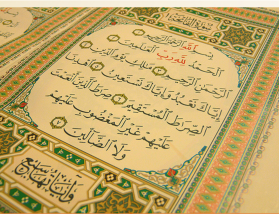 سورة الفاتحة
بسم الله الرحمن الرحيم
الحمد لله رب العالمين
الرحمن الرحيم ملك يوم الدين
إياك نعبد وإياك نستعين اهدنا
الصرط المستقيم صرط الذين أنعمت
عليهم غير المغضوب عليهم
ولا الضالين